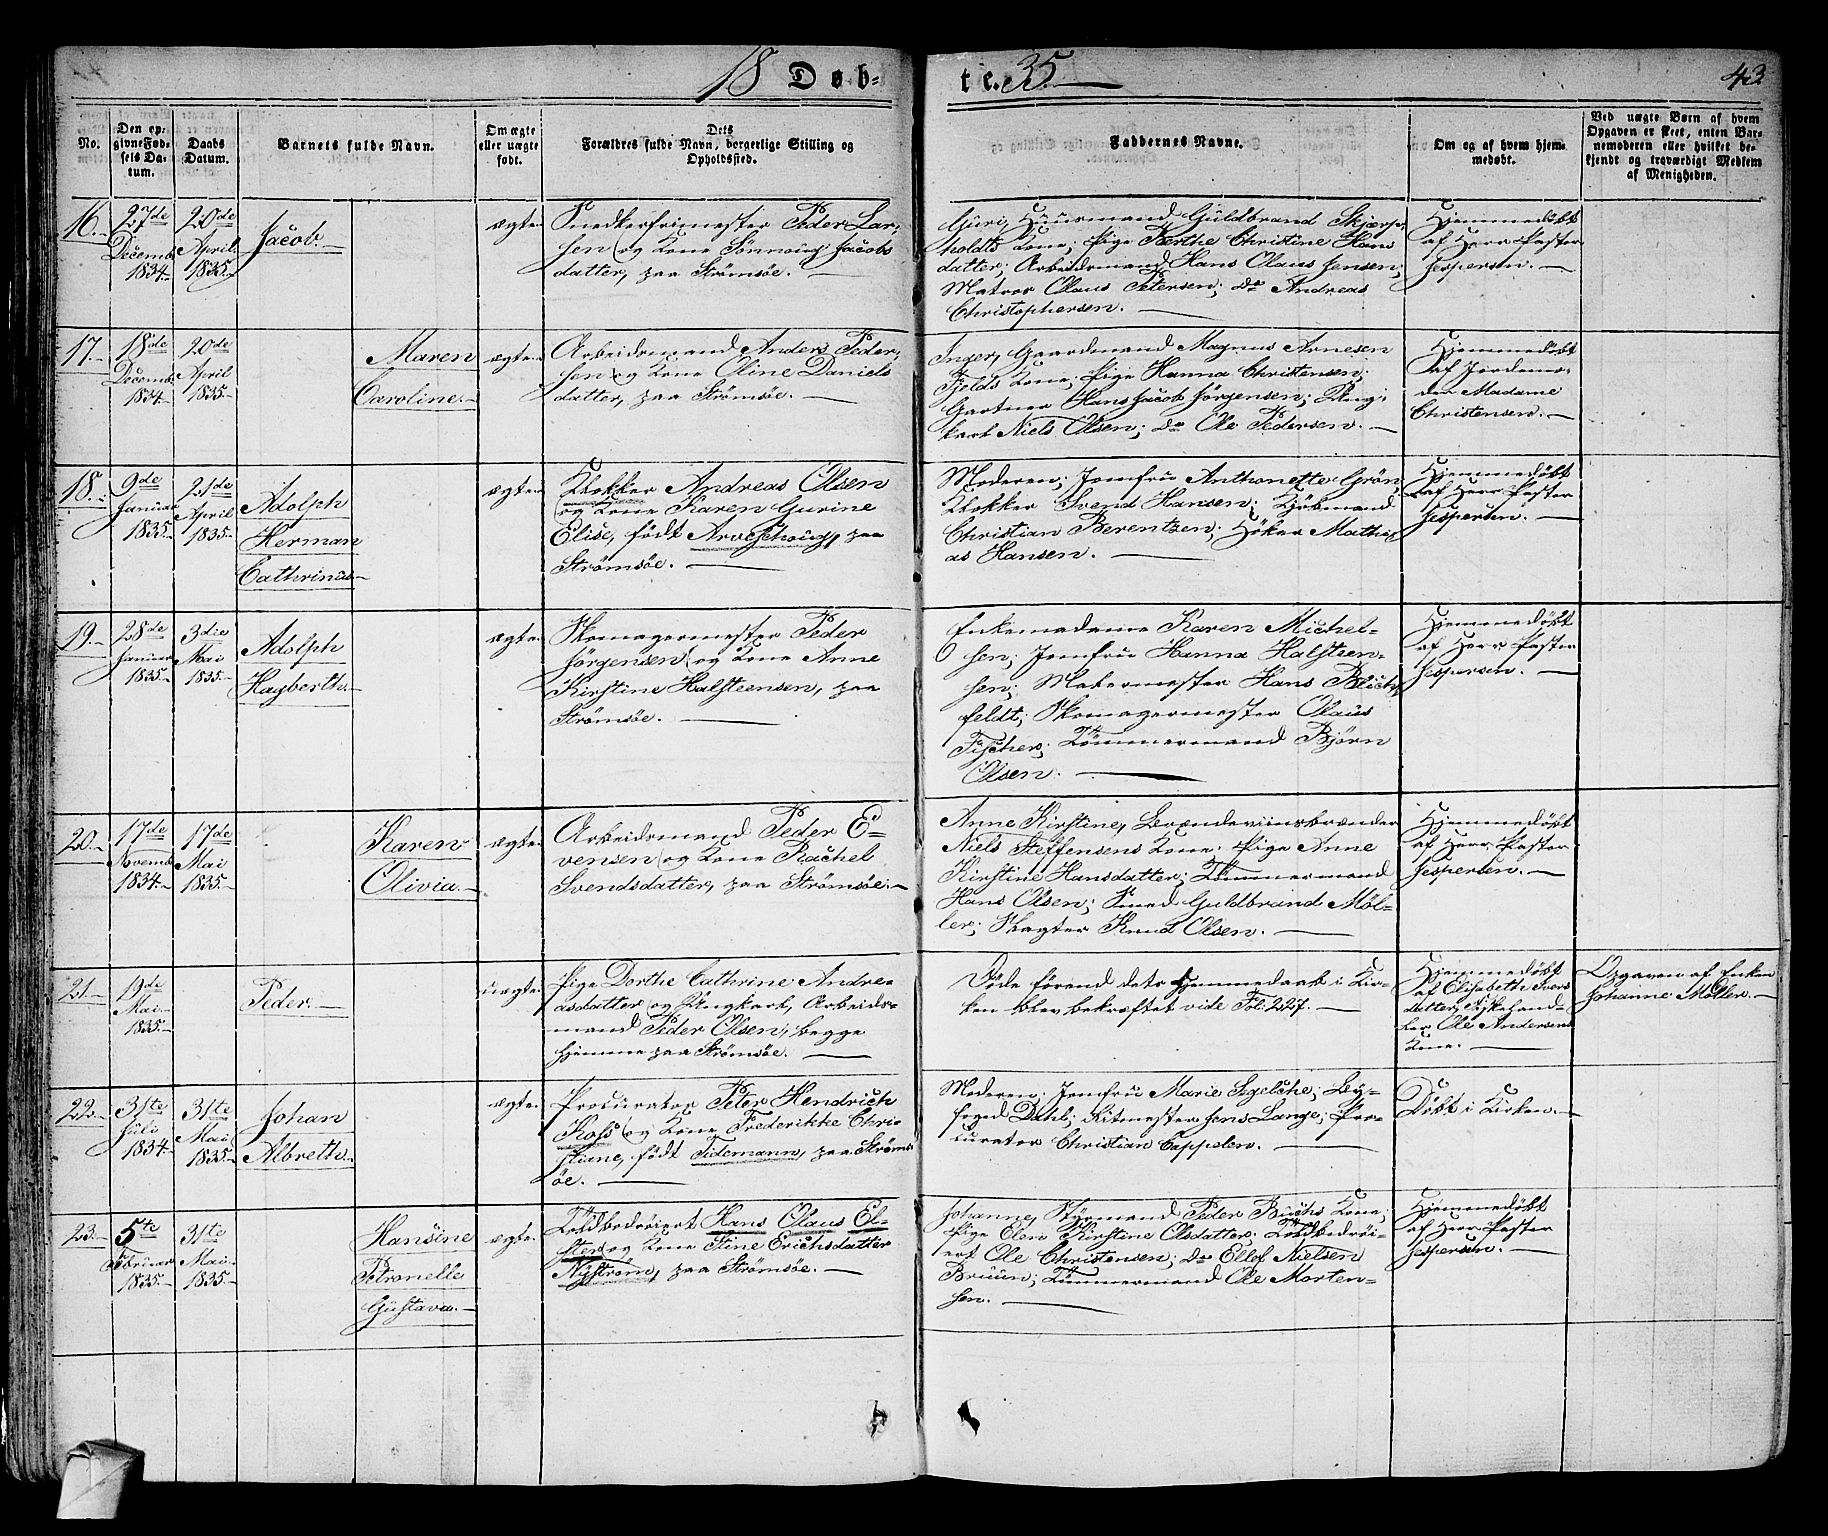 18 Døb-
te. 35.
43
No.
Den op-
givne Fød-
sels Da-
tum.
Daabs
Datum.
Barnets fulde Navn.
Om ægte
eller uægte
født.
Dets
Forældres fulde Navn, borgerlige Stilling og
Opholdssted.
Faddernes Navne.
Om og af hvem hjem-
medøbt.
Ved uægte Børn af hvem
Opgaven er skeet, enten Bar-
nemoderen eller hvilket be-
kjendt og troværdigt Medlem
af Menigheden.
16.
27de
Decemb.
1834.
20de
April
1835.
Jacob.
ægte.
Snedkerfrimester Peder Lar-
sen og Kone Sønnoug Jacobs
datter, paa Strømsøe.
Guri, Huusmand Guldbrand Skjærp-
holdts Kone; Pige Berthe Christine Hans
datter; Arbeidsmand Hans Olaus Jensen;
Matros Olaus Petersen; do Andreas
Christophersen.
Hjemmedøbt
af Herr Pastor
Jespersen.
17.
18de
Decemb.
1834.
20de
April
1835.
Maren
Caroline.
ægte.
Arbeidsmand Anders Peder-
sen og Kone Oline Daniels
datter, paa Strømsøe.
Inger, Gaardmand Magnus Arnesen
Fjelds Kone; Pige Hanna Christensen;
Gartner Hans Jacob Jørgensen; Ung-
karl Niels Olsen; do Ole Pedersen.
Hjemmedøbt
af Jordemo-
der Madame
Christensen.
18.
9de
Januar
1835.
21de
April
1835.
Adolph
Herman
Cathrinus.
ægte.
Klokker Andreas Olsen
og Kone Karen Gurine
Elise, født Arveschoug, paa
Strømsøe.
Moderen; Jomfru Anthonette Grøn,
Klokker Svend Hansen; Kjøbmand
Christian Berentzen; Høker Mathi-
as Hansen.
Hjemmedøbt
af Herr Pastor
Jespersen.
19.
28de
Januar
1835.
3die
Mai
1835.
Adolph
Hagberth.
ægte.
Skomagermester Peder
Jørgensen og Kone Anne
Kirstine Halsteensen, paa
Strømsøe.
Enkemadame Karen Michel-
sen; Jomfru Hanna Halsteen-
sen; Malermester Hans Blich-
feldt; Skomagermester Olaus
Fischer; Tømmermand Bjørn
Olsen.
Hjemmedøbt
af Herr Pastor
Jespersen.
20.
17de
Novemb.
1834.
17de
Mai
1835.
Karen
Olivia.
ægte.
Arbeidsmand Peder E-
vensen og Kone Rachel
Svendsdatter, paa Strømsøe.
Anne Kirstine, Brændeviinsbrænder
Niels Steffensens Kone; Pige Anne
Kirstine Hansdatter; Tømmermand
Hans Olsen; Smed Guldbrand Møl-
ler; Slagter Knud Olsen.
Hjemmedøbt
af Herr Pastor
Jespersen.
21.
19de
Mai
1835.
Peder
uægte.
Pige Dorthe Cathrine Andre-
asdatter og Ungkarl, Arbeids-
mand Peder Olsen, begge
hjemme paa Strømsøe.
Døde førend dets Hjemmedaab i Kir-
ken blev bekræftet vide Fol: 227.
Hjemmedøbt
af Elisabeth Ivers
datter, Fiskehand-
ler Ole Andersens
Kone.
Opgaven af Enken
Johanne Møller.
22.
31te
Juli
1834.
31te
Mai
1835.
Johan
Albreth.
ægte.
Procurator Peter Hendrich
Koss og Kone Frederikke Chri-
stiane, født Tidemann, paa Strøms-
øe.
Moderen; Jomfru Marie Sigelche; Ey-
Dahl; Ritmester Jens Lange; Pro-
curator Christian Cappelen.
Døbt i Kirken.
23.
5te
Februar
1835.
31te
Mai
1835.
Hansine
Petronelle
Gustava.
ægte.
Toldbedrøiert Hans Olaus El-
ster og Kone Stine Erichsdatter
Nystrøm, paa Strømsøe.
Johanne, Styrmand Peder Buchs Kone;
Pige Elen Kirstine Olsdatter; Toldbedrøi-
ert Ole Christensen; do Ellof Nielsen
Bruun; Tømmermand Ole Morten-
sen.
Hjemmedøbt
af Herr Pastor
Jespersen.